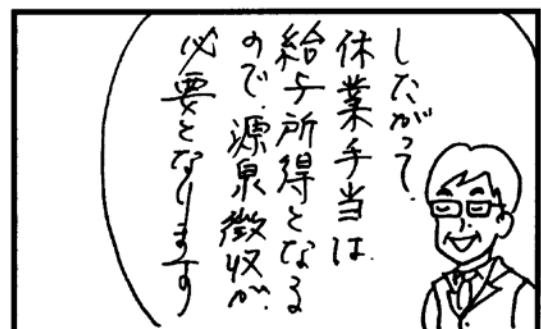 したがって、
休業手当は、
給与所得となる
ので、源泉徴収が、
必要となります